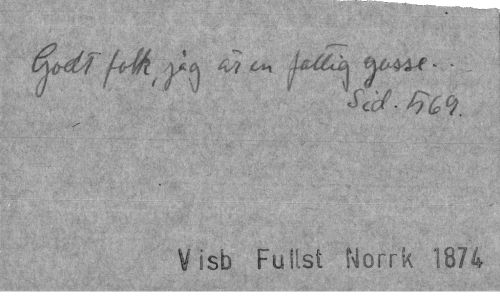 Godt folk, jag är en fattig gosse...
Sid. 569.
Visb Fullst Norrk 1874